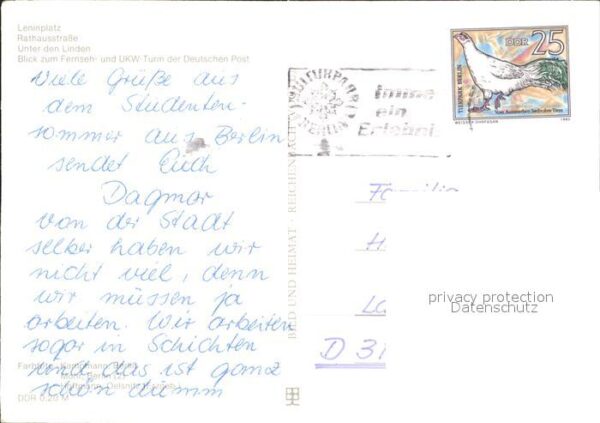 Leninplatz
Rathausstraße
Unter den Linden
Blick zum Fernseh- und UKW-Turm der Deutschen Post
Viele Grüße aus
dem Studenten-
sommer aus Berlin
sendet Euch
Dagmar
von der Stadt
selber haben wir
nicht viel, denn
wir müssen ja
arbeiten. Wir arbeiten
sogar in Schichten
und das ist ganz
schön dumm
DDR 0,20 M
BILD UND HEIMAT REICHENBACH
DDR 25
TIERPARK BERLIN
Imme
ein
Erlebni
Familie
H
La
D 31
privacy protection
Datenschutz